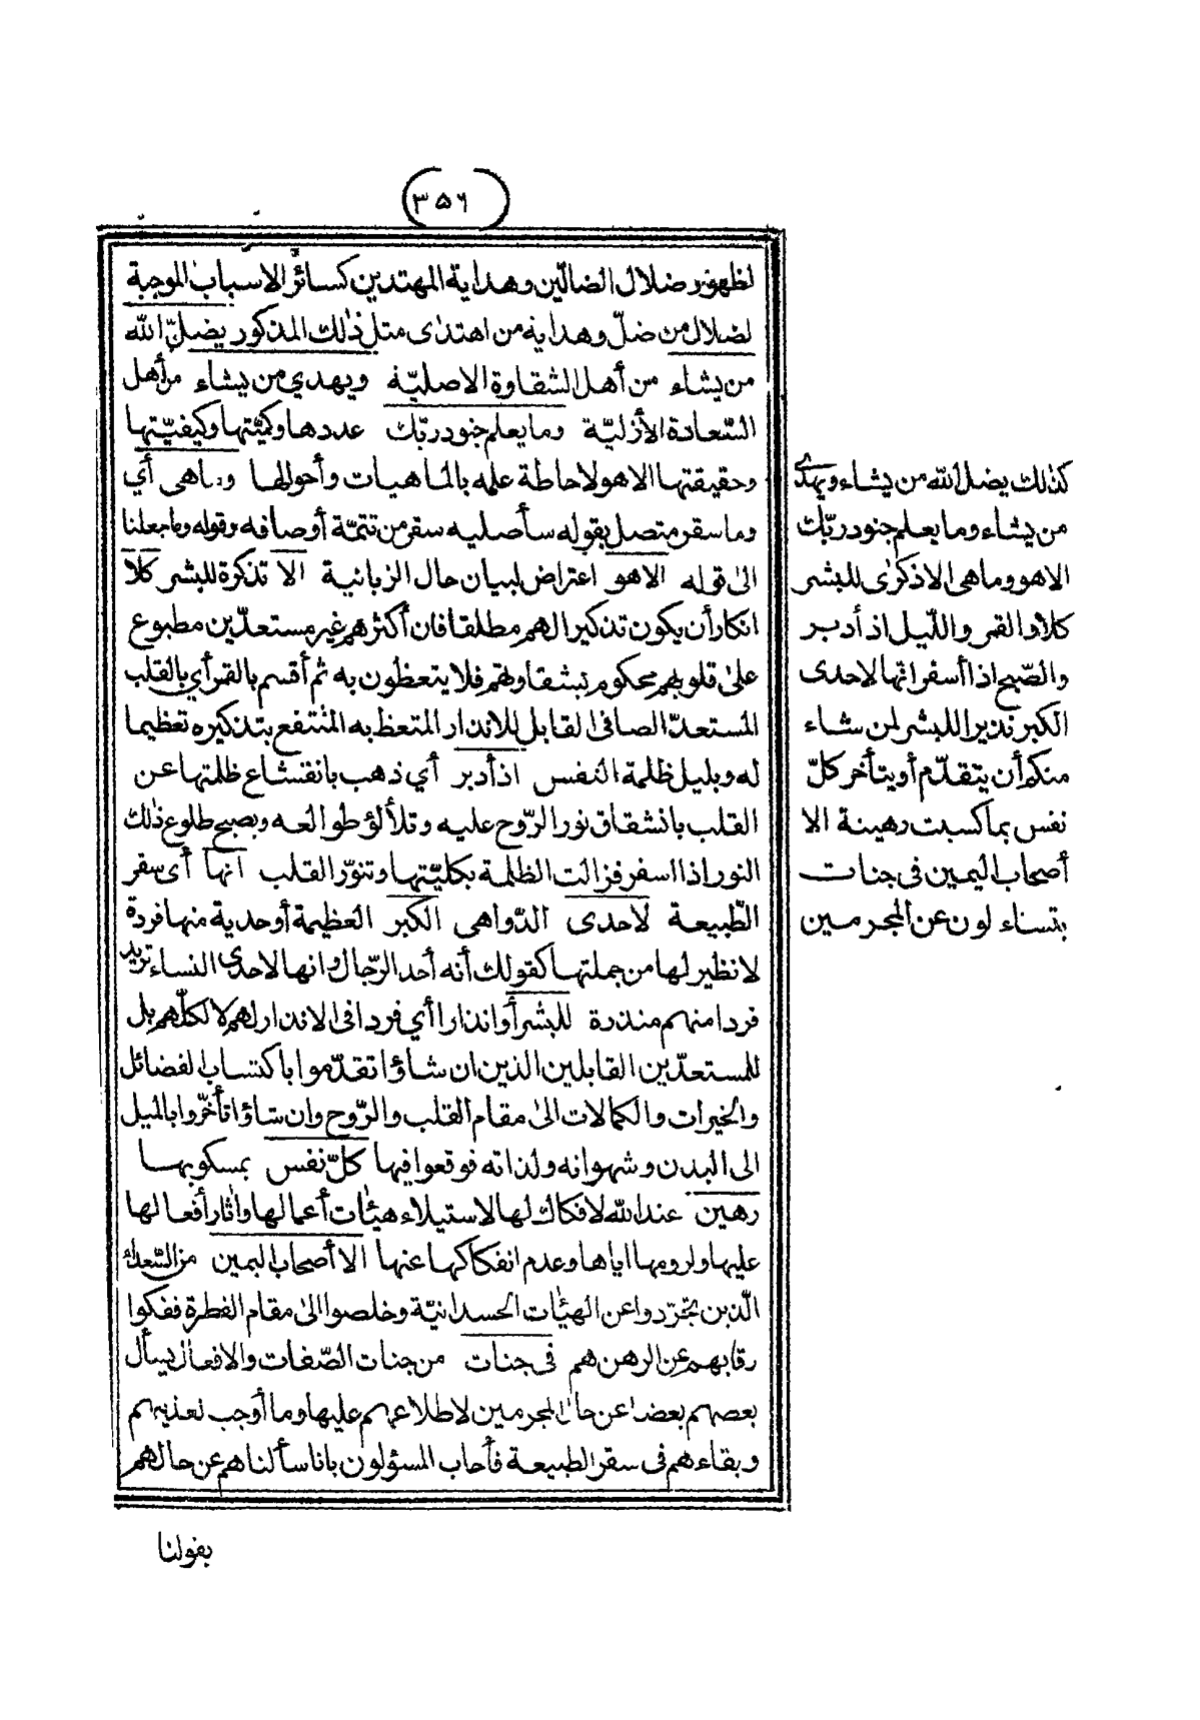 (٣٥٦)
لظهور ضلال الضالّين وهداية المهتدين كسائر الاسباب الموجبة
لضلال من ضلّ وهداية من اهتدى مثل ذلك المذكور يضلّ الله
من يشاء من أهل الشقاوة الاصليّة ويهدي من يشاء من أهل
السّعادة الأزليّة وما يعلم جنود ربّك عددها وكميّتها وكيفيّتها
وحقيقتها الاهو لاحاطة علمه بالماهيات وأحوالها وماهى أي
وما سقر متصل بقوله سأصليه سقر من تتمّة أوصافه وقوله وماجعلنا
الى قوله الاهو اعتراض لبيان حال الزبانية الا تذكرة للبشر كلا
انكار أن يكون تذكيرا لهم مطلقا فان أكثرهم غير مستعدّين مطبوع
على قلوبهم محكوم بشقاوتهم فلا يتعظون به ثم أقسم بالقمر أي بالقلب
المستعدّ الصافى القابل للانذار المتعظ به المنتفع بتذكيره تعظيما
له وبليل ظلمة النفس اذ أدبر أي ذهب بانقشاع ظلمتها عن
القلب بانشقاق نور الرّوح عليه وتلألؤ طوالعه وبصبح طلوع ذلك
النور اذا اسفر فزالت الظلمة بكليّتها وتنوّر القلب انها أى سقر
الطّبيعة لاحدى الدّواهى الكبر العظيمة أوحدية منها فردة
لانظير لها من جملتها كقولك أنه أحد الرّجال وانها لاحدى النساء تريد
فردا منهم منذرة للبشر أو انذارا أي فردا فى الانذار لهم لا لكلّهم بل
للمستعدّين القابلين الذين ان شاؤا تقدّموا باكتساب الفضائل
والخيرات والكمالات الى مقام القلب والرّوح وان شاؤا تأخّروا بالميل
الى البدن وشهواته ولذاته فوقعوا فيها كلّ نفس بمسكوبها
رهين عند الله لا فكاك لها لاستيلاء هيئات أعمالها وآثار أفعالها
عليها ولزومها اياها وعدم انفكاكها عنها الا أصحاب اليمين من السّعداء
الّذين تجرّدوا عن الهيئات الجسدانيّة وخلصوا الى مقام الفطرة ففكوا
رقابهم عن الرهن هم فى جنات من جنات الصّفات والافعال يسأل
بعضهم بعضا عن حال المجرمين لاطلاعهم عليها وما أوجب تعذيبهم
وبقاءهم فى سقر الطبيعة فأجاب المسؤلون بانا سألناهم عن حالهم
بقولنا
كذلك يضل الله من يشاء ويهدى
من يشاء وما يعلم جنود ربّك
الاهو وماهى الا ذكرى للبشر
كلا والقمر واللّيل اذ أدبر
والصّبح اذا أسفر انّها لاحدى
الكبر نذيرا للبشر لمن شاء
منكم أن يتقدّم أو يتأخر كلّ
نفس بما كسبت رهينة الا
أصحاب اليمين فى جنات
يتساءلون عن المجرمين